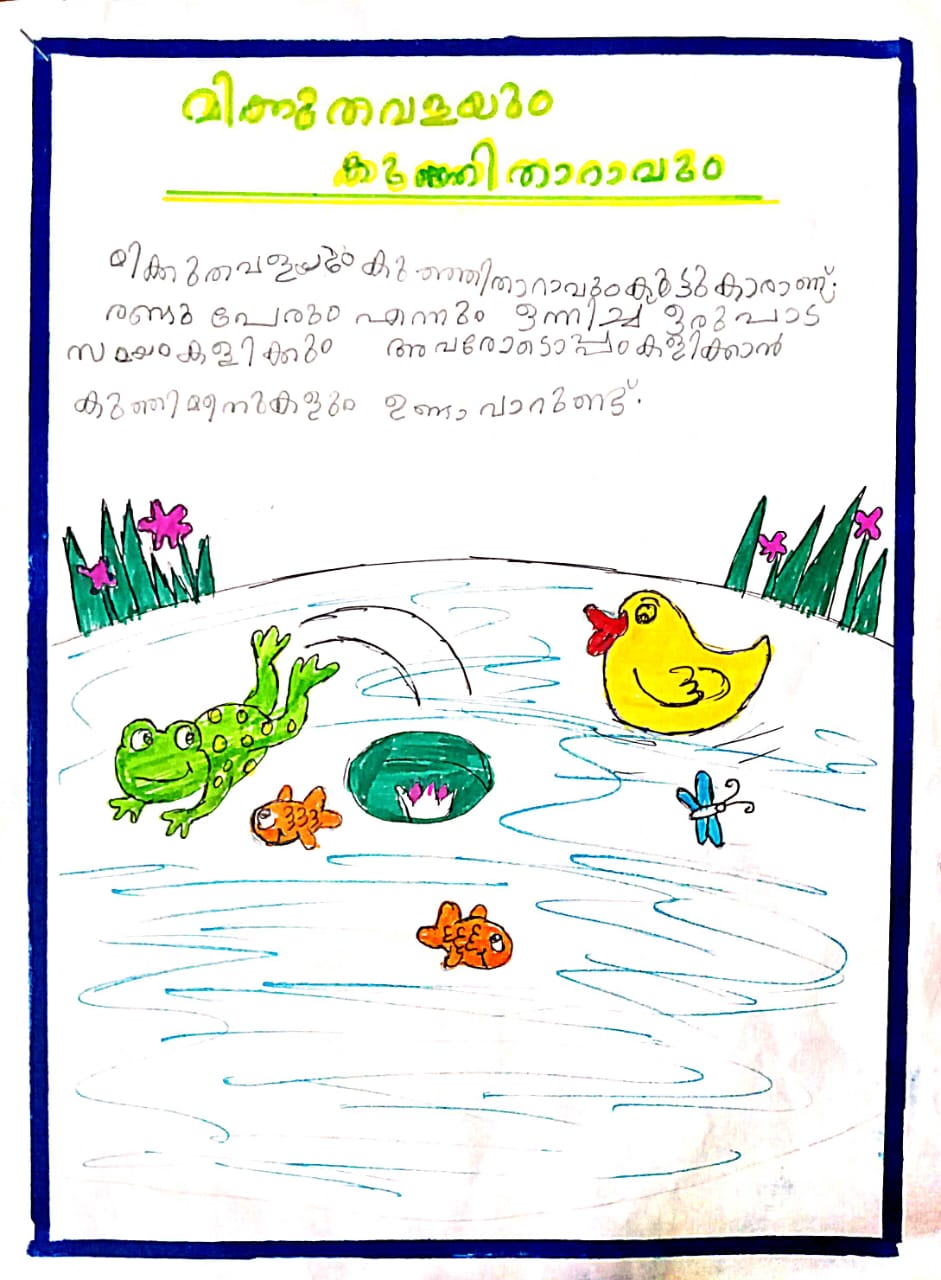 മിക്കുതവളയും
കുഞ്ഞിതാറാവും
മിക്കുതവളയും കുഞ്ഞിതാറാവുംകൂട്ടുകാരാണ്.
രണ്ടു പേരും എന്നും ഒന്നിച്ച് ഒരുപാട്
സമയംകളിക്കും അവരോടൊപ്പംകളിക്കാൻ
കുഞ്ഞിമീനുകളും ഉണ്ടാവാറുണ്ട്.